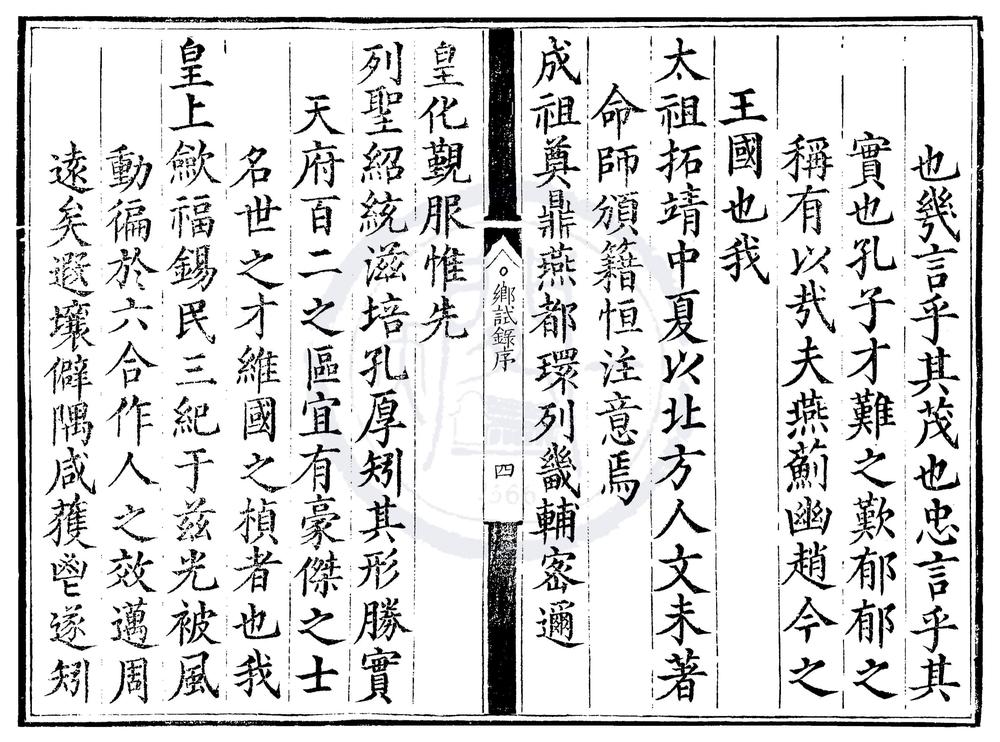 也幾言乎其茂也忠言乎其
實也孔子才難之歎郁郁之
稱有以㢤夫燕薊幽趙今之
王國也我
太祖拓靖中夏以北方人文未著
命師頒籍恒注意焉
成祖奠鼎燕都環列畿輔密邇
鄉試錄序
四
皇化觀服惟先
列聖紹統滋培孔厚矧其形勝實
天府百二之區宜有豪傑之士
名世之才維國之楨者也我
皇上歛福錫民三紀于茲光被風
動徧於六合作人之效邁周
遠矣遐壤僻隅咸獲鬯遂矧